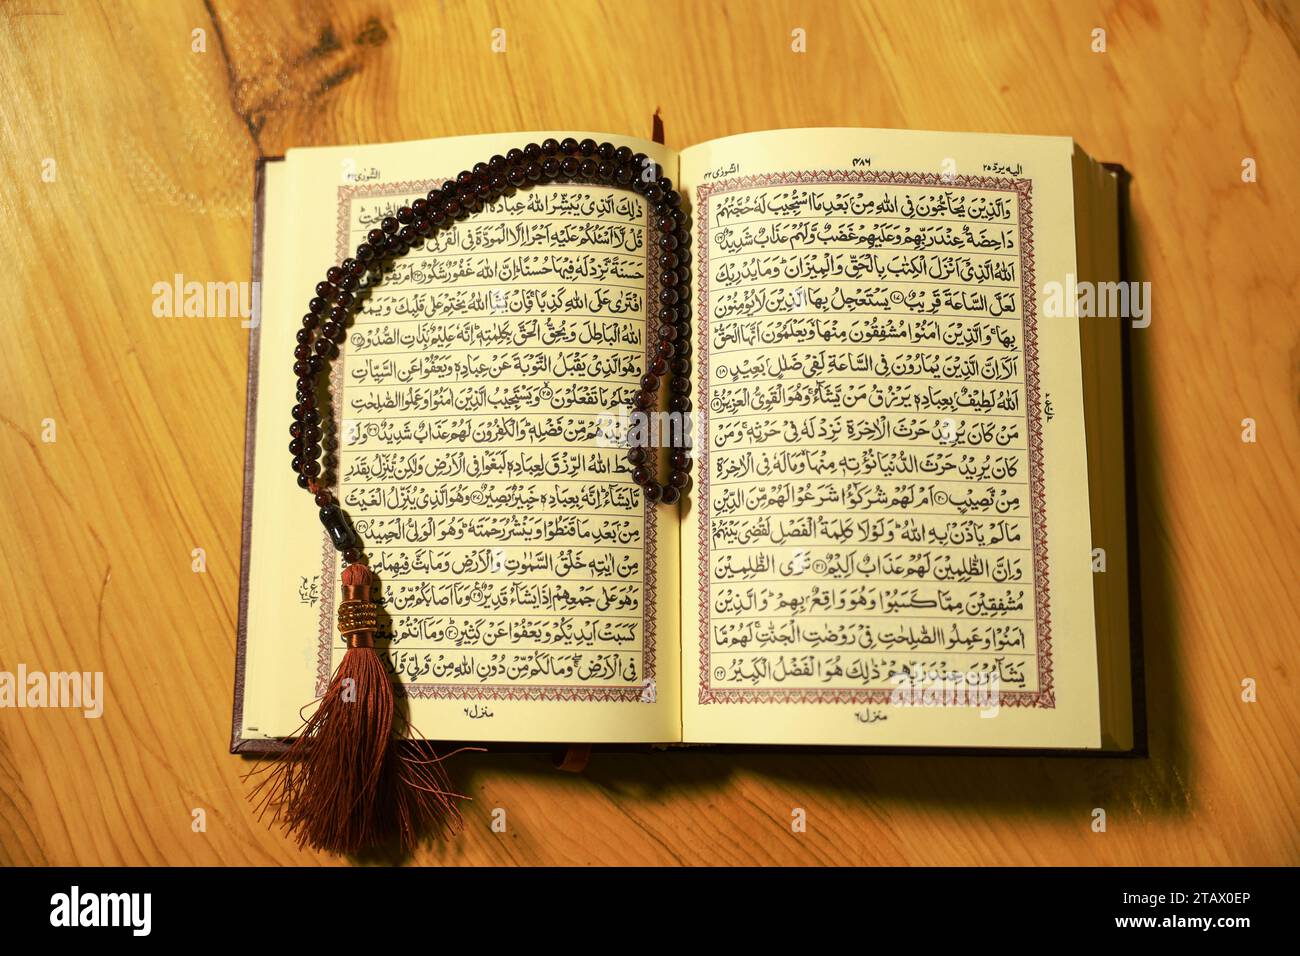 اليه يردّ ٢٥
٤٨٦
الشورٰى ٤٢
وَالَّذِيْنَ يُحَآجُّوْنَ فِى اللّٰهِ مِنْۢ بَعْدِ مَا اسْتُجِيْبَ لَهٗ حُجَّتُهُمْ
دَاحِضَةٌ عِنْدَ رَبِّهِمْ وَعَلَيْهِمْ غَضَبٌ وَّلَهُمْ عَذَابٌ شَدِيْدٌ ﴿١٦﴾
اَللّٰهُ الَّذِىْٓ اَنْزَلَ الْكِتٰبَ بِالْحَقِّ وَالْمِيْزَانَ ؕ وَمَا يُدْرِيْكَ
لَعَلَّ السَّاعَةَ قَرِيْبٌ ﴿١٧﴾ يَسْتَعْجِلُ بِهَا الَّذِيْنَ لَا يُؤْمِنُوْنَ
بِهَا ۚ وَالَّذِيْنَ اٰمَنُوْا مُشْفِقُوْنَ مِنْهَا ۙ وَيَعْلَمُوْنَ اَنَّهَا الْحَقُّ ؕ
اَلَاۤ اِنَّ الَّذِيْنَ يُمَارُوْنَ فِى السَّاعَةِ لَفِىْ ضَلٰلٍۢ بَعِيْدٍ ﴿١٨﴾
اَللّٰهُ لَطِيْفٌۢ بِعِبَادِهٖ يَرْزُقُ مَنْ يَّشَآءُ ۚ وَهُوَ الْقَوِىُّ الْعَزِيْزُ ﴿١٩﴾
مَنْ كَانَ يُرِيْدُ حَرْثَ الْاٰخِرَةِ نَزِدْ لَهٗ فِىْ حَرْثِهٖ ۚ وَمَنْ
كَانَ يُرِيْدُ حَرْثَ الدُّنْيَا نُؤْتِهٖ مِنْهَا ۙ وَمَا لَهٗ فِى الْاٰخِرَةِ
مِنْ نَّصِيْبٍ ﴿٢٠﴾ اَمْ لَهُمْ شُرَكٰٓؤُا شَرَعُوْا لَهُمْ مِّنَ الدِّيْنِ
مَا لَمْ يَاْذَنْۢ بِهِ اللّٰهُ ؕ وَلَوْلَا كَلِمَةُ الْفَصْلِ لَقُضِىَ بَيْنَهُمْ ؕ
وَاِنَّ الظّٰلِمِيْنَ لَهُمْ عَذَابٌ اَلِيْمٌ ﴿٢١﴾ تَرَى الظّٰلِمِيْنَ
مُشْفِقِيْنَ مِمَّا كَسَبُوْا وَهُوَ وَاقِعٌۢ بِهِمْ ؕ وَالَّذِيْنَ
اٰمَنُوْا وَعَمِلُوا الصّٰلِحٰتِ فِىْ رَوْضٰتِ الْجَنّٰتِ ۚ لَهُمْ مَّا
يَشَآءُوْنَ عِنْدَ رَبِّهِمْ ؕ ذٰلِكَ هُوَ الْفَضْلُ الْكَبِيْرُ ﴿٢٢﴾
منزل ٦
الشورٰى ٤٢
ذٰلِكَ الَّذِىْ يُبَشِّرُ اللّٰهُ عِبَادَهُ الصّٰلِحٰتِ ؕ
قُلْ لَّاۤ اَسْئَلُكُمْ عَلَيْهِ اَجْرًا اِلَّا الْمَوَدَّةَ فِى الْقُرْبٰى
حَسَنَةً نَّزِدْ لَهٗ فِيْهَا حُسْنًا ؕ اِنَّ اللّٰهَ غَفُوْرٌ شَكُوْرٌ ﴿٢٣﴾ اَمْ يَقُوْلُوْنَ
افْتَرٰى عَلَى اللّٰهِ كَذِبًا ۚ فَاِنْ يَّشَاِ اللّٰهُ يَخْتِمْ عَلٰى قَلْبِكَ ؕ وَيَمْحُ
اللّٰهُ الْبَاطِلَ وَيُحِقُّ الْحَقَّ بِكَلِمٰتِهٖ ؕ اِنَّهٗ عَلِيْمٌۢ بِذَاتِ الصُّدُوْرِ ﴿٢٤﴾
وَهُوَ الَّذِىْ يَقْبَلُ التَّوْبَةَ عَنْ عِبَادِهٖ وَيَعْفُوْا عَنِ السَّيِّاٰتِ
وَيَعْلَمُ مَا تَفْعَلُوْنَ ﴿٢٥﴾ وَيَسْتَجِيْبُ الَّذِيْنَ اٰمَنُوْا وَعَمِلُوا الصّٰلِحٰتِ
وَيَزِيْدُهُمْ مِّنْ فَضْلِهٖ ؕ وَالْكٰفِرُوْنَ لَهُمْ عَذَابٌ شَدِيْدٌ ﴿٢٦﴾ وَلَوْ
بَسَطَ اللّٰهُ الرِّزْقَ لِعِبَادِهٖ لَبَغَوْا فِى الْاَرْضِ وَلٰكِنْ يُّنَزِّلُ بِقَدَرٍ
مَّا يَشَآءُ ؕ اِنَّهٗ بِعِبَادِهٖ خَبِيْرٌۢ بَصِيْرٌ ﴿٢٧﴾ وَهُوَ الَّذِىْ يُنَزِّلُ الْغَيْثَ
مِنْۢ بَعْدِ مَا قَنَطُوْا وَيَنْشُرُ رَحْمَتَهٗ ؕ وَهُوَ الْوَلِىُّ الْحَمِيْدُ ﴿٢٨﴾
مِنْ اٰيٰتِهٖ خَلْقُ السَّمٰوٰتِ وَالْاَرْضِ وَمَا بَثَّ فِيْهِمَا مِنْ
وَهُوَ عَلٰى جَمْعِهِمْ اِذَا يَشَآءُ قَدِيْرٌ ﴿٢٩﴾ وَمَاۤ اَصَابَكُمْ مِّنْ
كَسَبَتْ اَيْدِيْكُمْ وَيَعْفُوْا عَنْ كَثِيْرٍ ﴿٣٠﴾ وَمَاۤ اَنْتُمْ
فِى الْاَرْضِ ۖۚ وَمَا لَكُمْ مِّنْ دُوْنِ اللّٰهِ مِنْ وَّلِىٍّ وَّلَا
منزل ٦
alamy
Image ID: 2TAX0EP
www.alamy.com